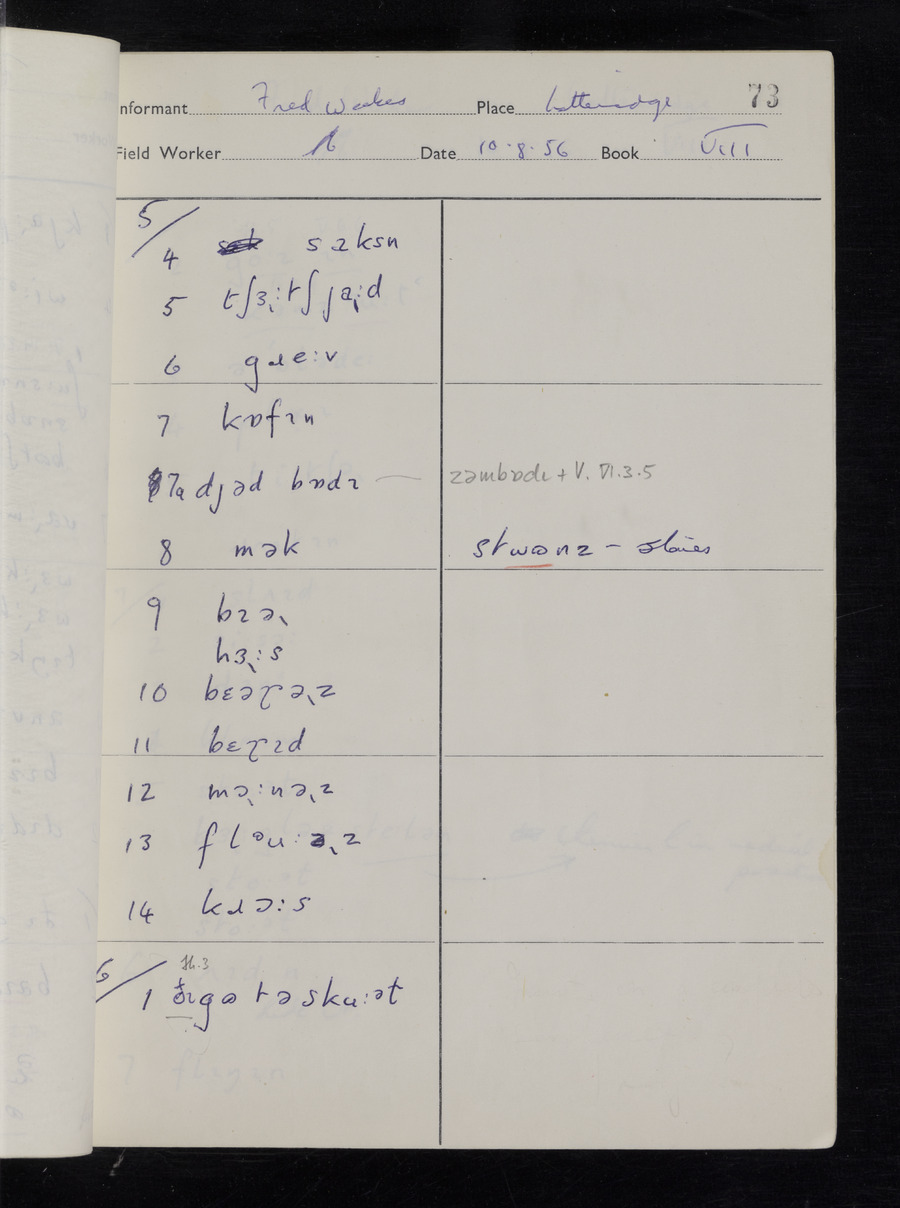 73
Informant Fred Weekes Place Latteridge
Field Worker Date 10.8.56 Book VIII
5/
4 sɪksn
5 tʃɜ˞ːtʃ ɟaˑ˞ːd
6 gɹeːv
7 kɒfɪn
7a dɟəd bɒdɪ zəmbɒdɪ + V. VI.3.5
8 mək stwɷnz – stones
9 bɪə˞
hɜ˞ːs
10 bɛəɽə˞z
11 bɛɽɪd
12 mə˞ːnə˞z
13 flɒuːə˞z
14 kɹɔːs
6/ Th.3
1 ðɪgɷ təskuːət